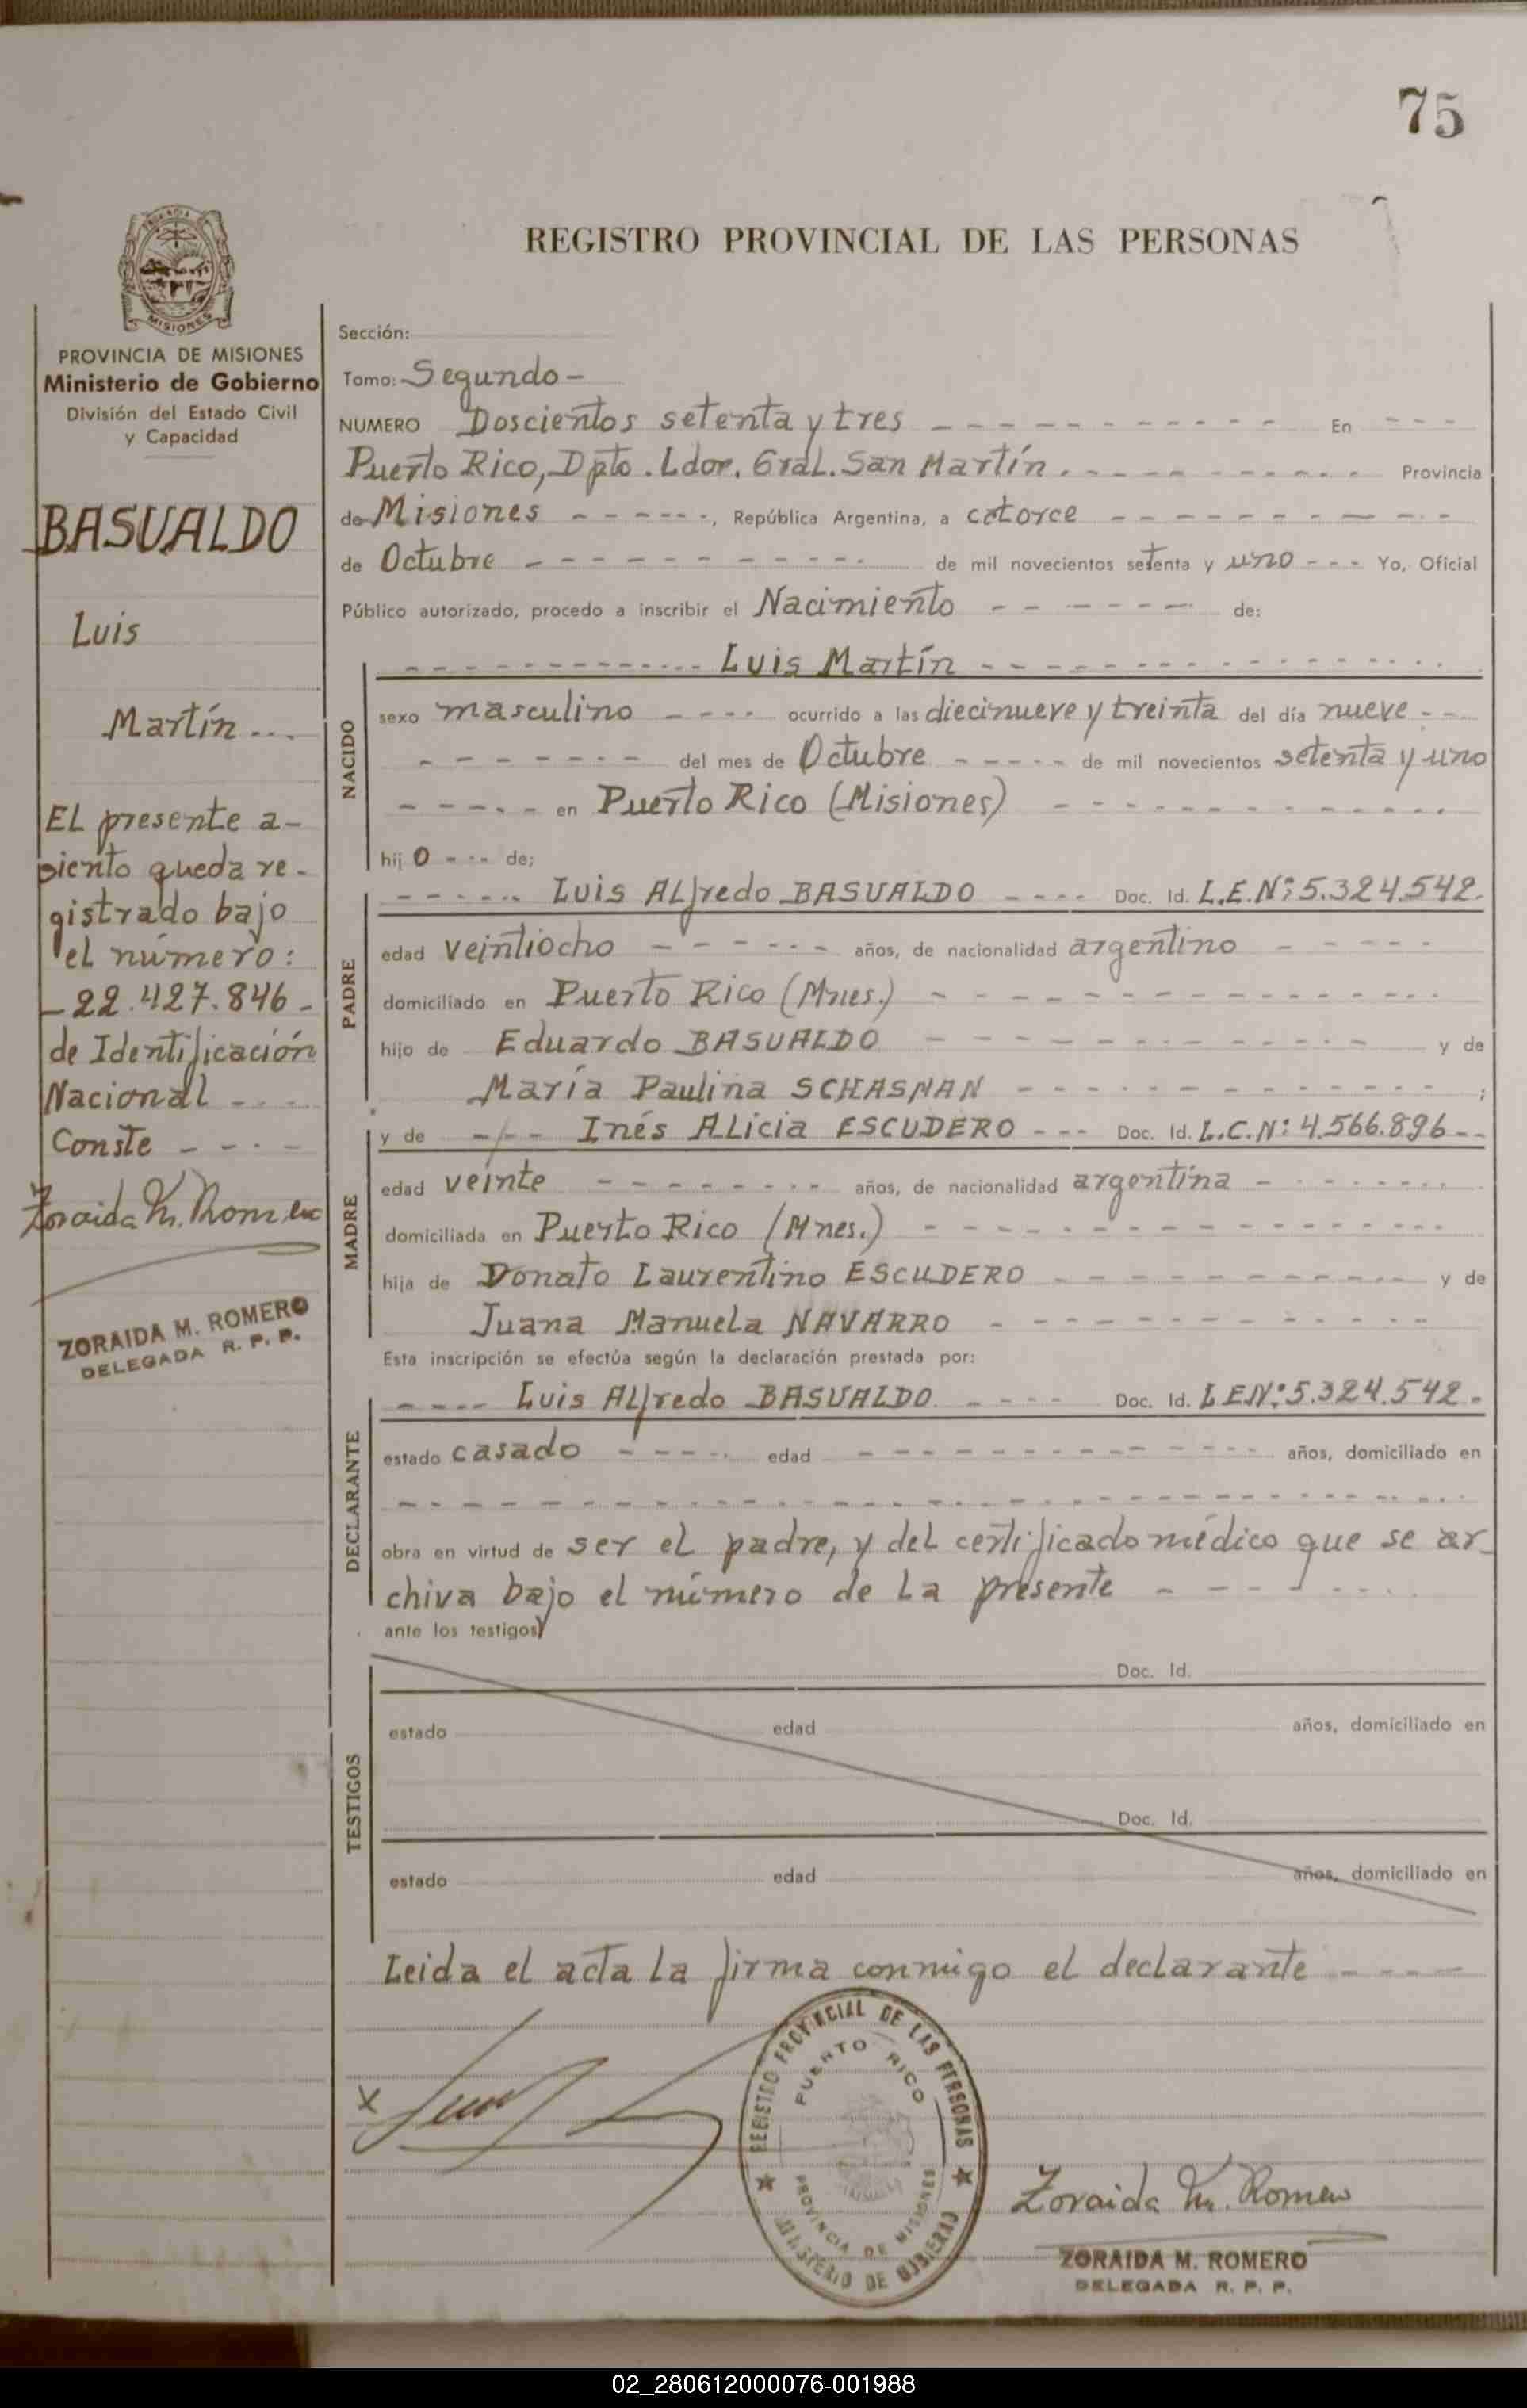 75
REGISTRO PROVINCIAL DE LAS PERSONAS
MISIONES
PROVINCIA DE MISIONES
Ministerio de Gobierno
División del Estado Civil
y Capacidad
BASUALDO
Luis
Martín
El presente a-
siento queda re-
gistrado bajo
el número:
-22.427.846-
de Identificación
Nacional
Conste
Zoraida M. Romero
ZORAIDA M. ROMERO
DELEGADA R. P. P.
Sección:
Tomo: Segundo-
NUMERO Doscientos setenta y tres En
Puerto Rico, Dpto. Ldor. Gral. San Martín. Provincia
de Misiones, República Argentina, a catorce
de Octubre de mil novecientos setenta y uno Yo, Oficial
Público autorizado, procedo a inscribir el Nacimiento de:
NACIDO
Luis Martín
sexo masculino ocurrido a las diecinueve y treinta del día nueve
del mes de Octubre de mil novecientos setenta y uno
en Puerto Rico (Misiones)
hij o de;
PADRE
Luis Alfredo BASUALDO Doc. Id. L.E.Nº: 5.324.542.
edad veintiocho años, de nacionalidad argentino
domiciliado en Puerto Rico (Mnes.)
hijo de Eduardo BASUALDO y de
María Paulina SCHASMAN ;
MADRE
y de Inés Alicia ESCUDERO Doc. Id. L.C.Nº: 4.566.896
edad veinte años, de nacionalidad argentina
domiciliada en Puerto Rico (Mnes.)
hija de Donato Laurentino ESCUDERO y de
Juana Manuela NAVARRO
Esta inscripción se efectúa según la declaración prestada por:
DECLARANTE
Luis Alfredo BASUALDO Doc. Id. L.E.Nº: 5.324.542-
estado casado edad años, domiciliado en
obra en virtud de ser el padre, y del certificado médico que se ar-
chiva bajo el número de la presente
ante los testigos
TESTIGOS
Doc. Id.
estado edad años, domiciliado en
Doc. Id.
estado edad años, domiciliado en
Leida el acta la firma conmigo el declarante
x
REGISTRO PROVINCIAL DE LAS PERSONAS
PUERTO RICO
PROVINCIA DE MISIONES
MINISTERIO DE GOBIERNO
Zoraida M. Romero
ZORAIDA M. ROMERO
DELEGADA R. P. P.
02_280612000076-001988